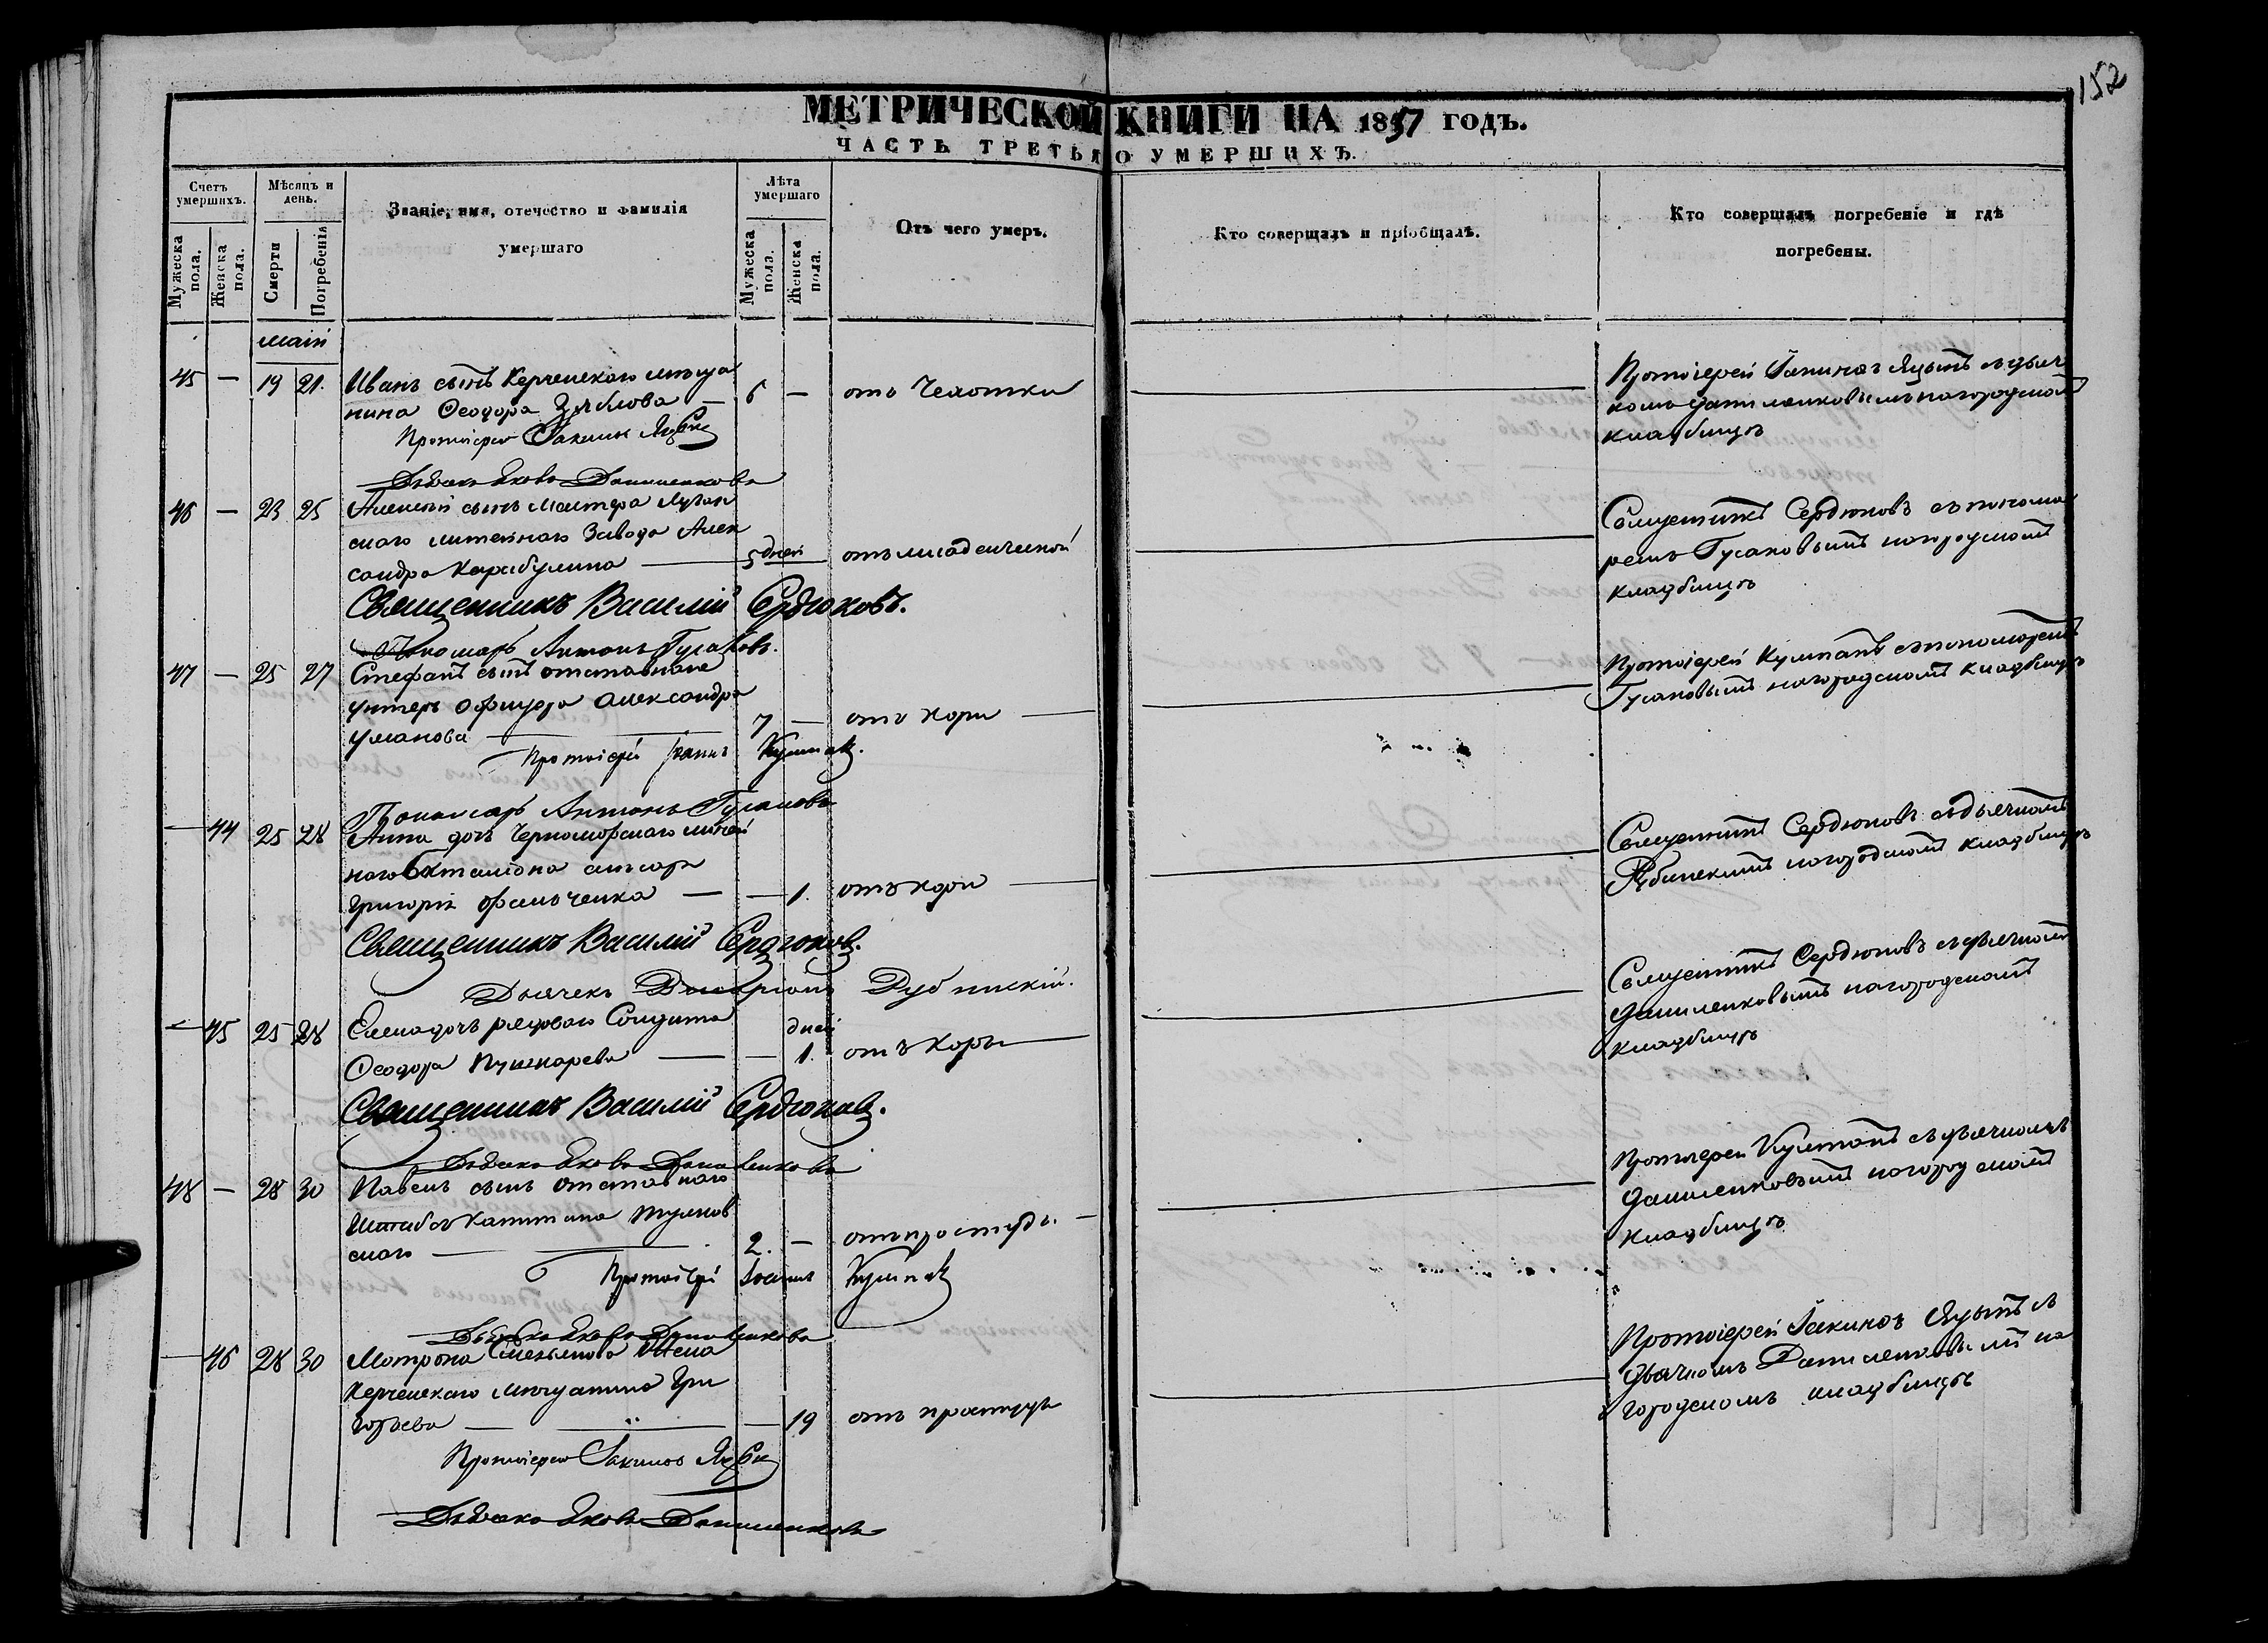 152
МЕТРИЧЕСКОЙ КНИГИ НА 1857 ГОДЪ.
ЧАСТЬ ТРЕТЬЯ О УМЕРШИХЪ.
Счетъ умершихъ.
Мужеска пола.
Женска пола.
Мѣсяцъ и день.
Смерти
Погребенія
Званіе, имя, отечество и фамилія
умершаго
Лѣта умершаго
Мужеска пола.
Женска пола.
Отъ чего умеръ.
Кто совершалъ и пріобщалъ.
Кто совершалъ погребеніе и гдѣ
погребены.
маій
45 — 19 21. Иванъ сынъ Керченскаго мѣща
нина Ѳеодора — 6 — отъ Чахотки
Протоіерей Іакинѳъ
Протоіерей Іакинѳъ съ дьяч
комъ Даниленковымъ на городскомъ
кладбищѣ
Дьячекъ Яковъ Даниленковъ
46 — 23 25 Алексѣй сынъ мастера Луган
скаго литейнаго Завода Алек
сандра — 5 дней отъ младенческой
Священникъ Василій Сердюковъ.
Пономарь Антонъ Гусаковъ.
Священникъ Сердюковъ съ понома
ремъ Гусаковымъ на городскомъ
кладбищѣ
47 — 25 27 Стефанъ сынъ отставнаго
унтеръ офицера Александра
Уманова — 7 — отъ кори —
Протоіерей Іоаннъ Кумпанъ.
Пономарь Антонъ Гусаковъ
Протоіерей Кумпанъ съ пономаремъ
Гусаковымъ на городскомъ кладбищѣ
— 44 25 28 Анна дочь Черноморскаго линей
наго баталіона
Григорія — — 1. отъ кори —
Священникъ Василій Сердюковъ.
Дьячекъ Дубинскій.
Священникъ Сердюковъ съ дьячкомъ
Дубинскимъ на городскомъ кладбищѣ
— 45 25 28 Елена дочь рядоваго Солдата
Ѳеодора Пушкарева — — дней 1. отъ кори —
Священникъ Василій Сердюковъ.
Дьячекъ Яковъ Даниленковъ
Священникъ Сердюковъ съ дьячкомъ
Даниленковымъ на городскомъ
кладбищѣ
48 — 28 30 Павелъ сынъ отставнаго
Штабсъ Капитана
скаго — 2. — отъ простуды. —
Протоіерей Іоаннъ Кумпанъ
Дьячекъ Яковъ Даниленковъ
Протоіерей Кумпанъ съ дьячкомъ
Даниленковымъ на городскомъ
кладбищѣ
— 46 28 30 Матрона жена
Керченскаго мѣщанина Гри
горьева — — 19 отъ простуды
Протоіерей Іакинѳъ
Дьячекъ Яковъ Даниленковъ
Протоіерей Іакинѳъ съ
дьячкомъ Даниленковымъ на
городскомъ кладбищѣ